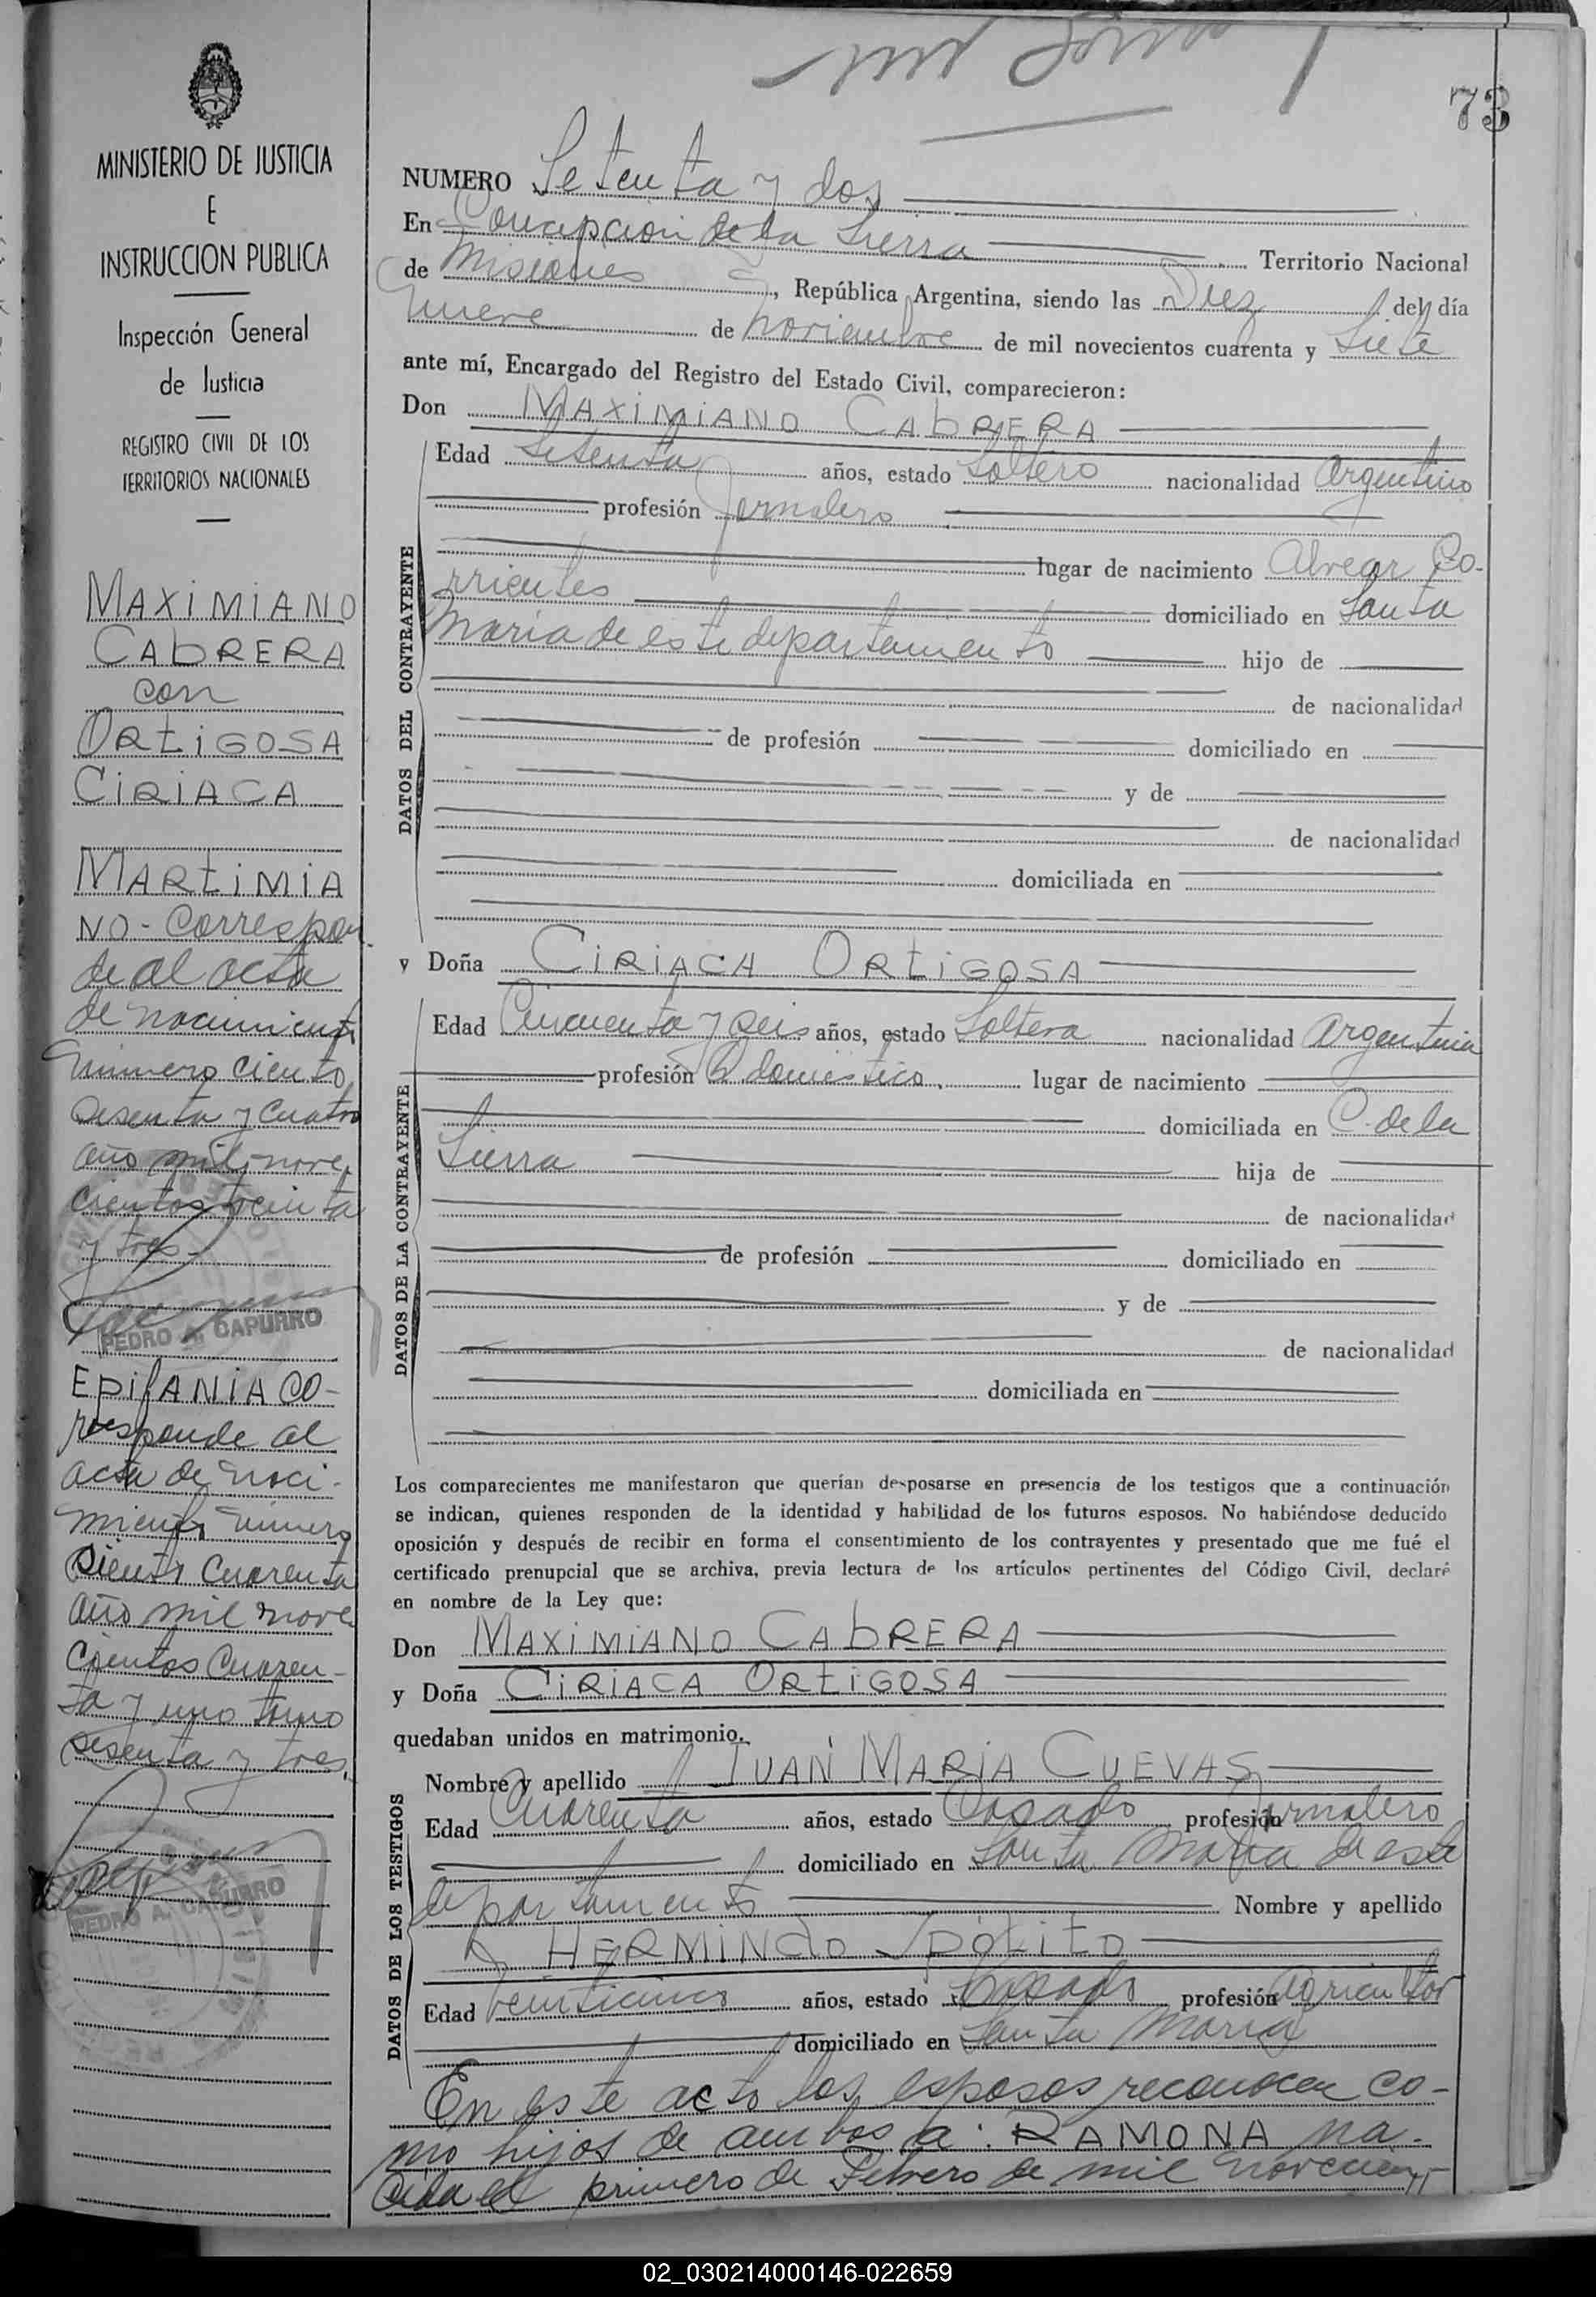 73
MINISTERIO DE JUSTICIA
E
INSTRUCCION PUBLICA
Inspección General
de Justicia
REGISTRO CIVIL DE LOS
TERRITORIOS NACIONALES
MAXIMIANO
CABRERA
con
ORTIGOSA
CIRIACA
MARTIMIA
NO - Correspon
de al acta
de nacimiento
número ciento
sesenta y cuatro
año mil nove
cientos treinta
y tres -
PEDRO A. CAPURRO
EPIFANIA CO-
rresponde al
acta de naci-
miento número
siento cuarenta
año mil nove
cientos cuaren-
ta y uno tomo
sesenta y tres.
PEDRO A. CAPURRO
NUMERO Setenta y dos
En Concepcion de la Sierra Territorio Nacional
de Misiones, República Argentina, siendo las Diez del día
nueve de noviembre de mil novecientos cuarenta y Siete
ante mí, Encargado del Registro del Estado Civil, comparecieron:
Don MAXIMIANO CABRERA
DATOS DEL CONTRAYENTE
Edad años, estado Soltero nacionalidad Argentino
profesión Jornalero
lugar de nacimiento Alvear Co-
rrientes domiciliado en Santa
Maria de este departamento hijo de
de nacionalidad
de profesión domiciliado en
y de
de nacionalidad
domiciliada en
y Doña CIRIACA ORTIGOSA
DATOS DE LA CONTRAYENTE
Edad Cincuenta y seis años, estado Soltera nacionalidad Argentina
profesión Q domestico. lugar de nacimiento
domiciliada en C. de la
Sierra hija de
de nacionalidad
de profesión domiciliado en
y de
de nacionalidad
domiciliada en
Los comparecientes me manifestaron que querían desposarse en presencia de los testigos que a continuación
se indican, quienes responden de la identidad y habilidad de los futuros esposos. No habiéndose deducido
oposición y después de recibir en forma el consentimiento de los contrayentes y presentado que me fué el
certificado prenupcial que se archiva, previa lectura de los artículos pertinentes del Código Civil, declaré
en nombre de la Ley que:
Don MAXIMIANO CABRERA
y Doña CIRIACA ORTIGOSA
quedaban unidos en matrimonio.
DATOS DE LOS TESTIGOS
Nombre y apellido JUAN MARIA CUEVAS
Edad Cuarenta años, estado Casado profesión Jornalero
domiciliado en Santa Maria de este
departamento Nombre y apellido
HERMINDO IPOLITO
Edad Veinticinco años, estado Casado profesión Agricultor
domiciliado en Santa Maria
En este acto los esposos reconocen co-
mo hijos de ambos a: RAMONA na-
cida el primero de Febrero de mil novecien
02_030214000146-022659